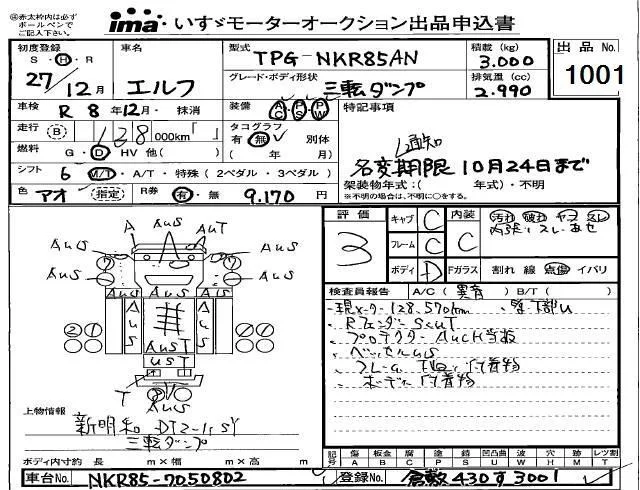 ㊟赤太枠内は必ず
ボールペンで
ご記入下さい。
ima いすゞモーターオークション出品申込書
初度登録
S・H・R
27/12月
車名
エルフ
型式
TPG-NKR85AN
グレード・ボディ形状
三転ダンプ
積載(kg)
3.000
排気量(cc)
2.990
出品No.
1001
車検 R 8年12月・抹消
装備 AC PS PW
特記事項
走行 (B) 128 000km「 」
タコグラフ
有・無 別体
( 年 月)
燃料 G・D・HV 他( )
通知
名変期限10月24日まで
シフト 6 M/T・A/T・特殊(2ペダル・3ペダル)
架装物年式:( 年式)・不明
※不明の場合は、不明に○をする。
色 アオ (指定) R券 有・無 9.170円
評価
3
キャブ C
フレーム C
ボディ D
内装 C
汚れ 破れ ヤブ スレ
Fガラス 割れ 線 点傷 イバリ
検査員報告 A/C( 異音 ) B/T( )
・Rフェンダー ScUT
・プロテクター AUCH
・ベッセルUS
・ボディ付着物
A AUS AUT
AUS
AUS AUS
AUS AUS AUS
AUS AUS
AUST
UST
T
AUS
上物情報
新明和 DT2-1,5Y
三転ダンプ
ボディ内寸約 長 m×幅 m×高 m
記号 傷 板金 腐 塗 錆 凹凸曲 波 穴 跡 レツ割
A B C P S U W H M T
車台No. NKR85-7050802
登録No. 倉敷430す3001